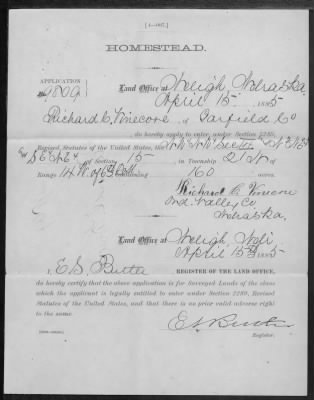 [4—007.]
HOMESTEAD.
APPLICATION
No. 9809
Land Office at Neligh Nebraska
April 15 1885
I, Richard C. Vinecore, of Garfield Co
do hereby apply to enter, under Section 2289,
Revised Statutes of the United States, the
SE NE of Section 15, in Township 21 N of
Range 14 W of 6th P.M. containing 160 acres.
Richard C. Vinecore
Ord Valley Co
Nebraska.
Land Office at Neligh Neb
April 15 1885
I, E. S. Butler REGISTER OF THE LAND OFFICE,
do hereby certify that the above application is for Surveyed Lands of the class
which the applicant is legally entitled to enter under Section 2289, Revised
Statutes of the United States, and that there is no prior valid adverse right
to the same.
E S Butler
Register.